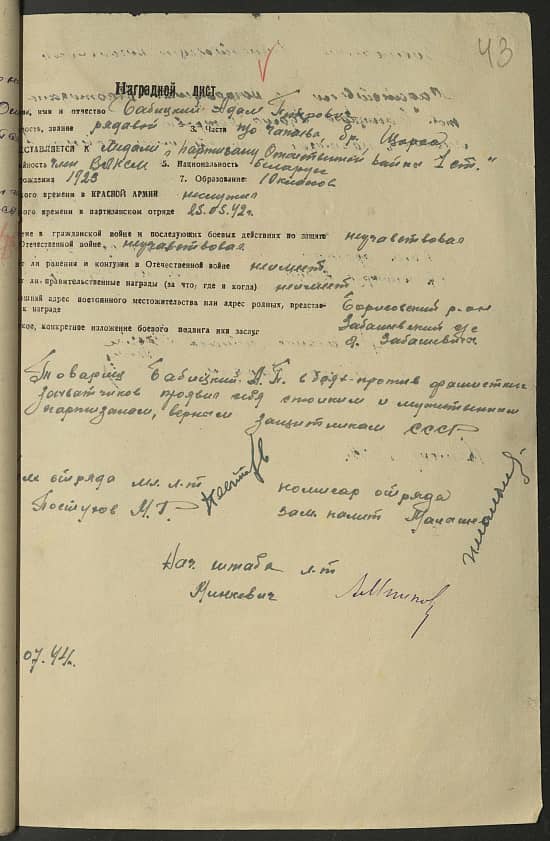 43
Наградной лист
имя и отчество Бабицкий Адам Петрович
звание рядовой 3. Часть п/о Чапаева бр. Щорса
СТАВЛЯЕТСЯ К медали „Партизану Отечественной войны 1 ст."
член ВЛКСМ 5. Национальность беларус
рождения 1923 7. Образование: 10 классов
кого времени в КРАСНОЙ АРМИИ не служил
ого времени в партизанском отряде 25.05.42 г.
в гражданской войне и последующих боевых действиях по защите неучавствовал
Отечественной войне, неучавствовал
ли ранения и контузии в Отечественной войне неимеет
ли правительственные награды (за что, где и когда) неимеет
адрес постоянного местожительства или адрес родных, представ- Борисовский р-он
к награде Забашевский с/с
ное, конкретное изложение боевого подвига или заслуг д. Забашевичи
Товарищ Бабицкий А.П. в боях против фашистких
захватчиков проявил себя стойким и мужественным
партизаном, верным защитникам СССР
отряда мл. л-т
комисар отряда
Постухов М. Г.
зам. полит
Нач. штаба л-т
Минкевич
07.44г.